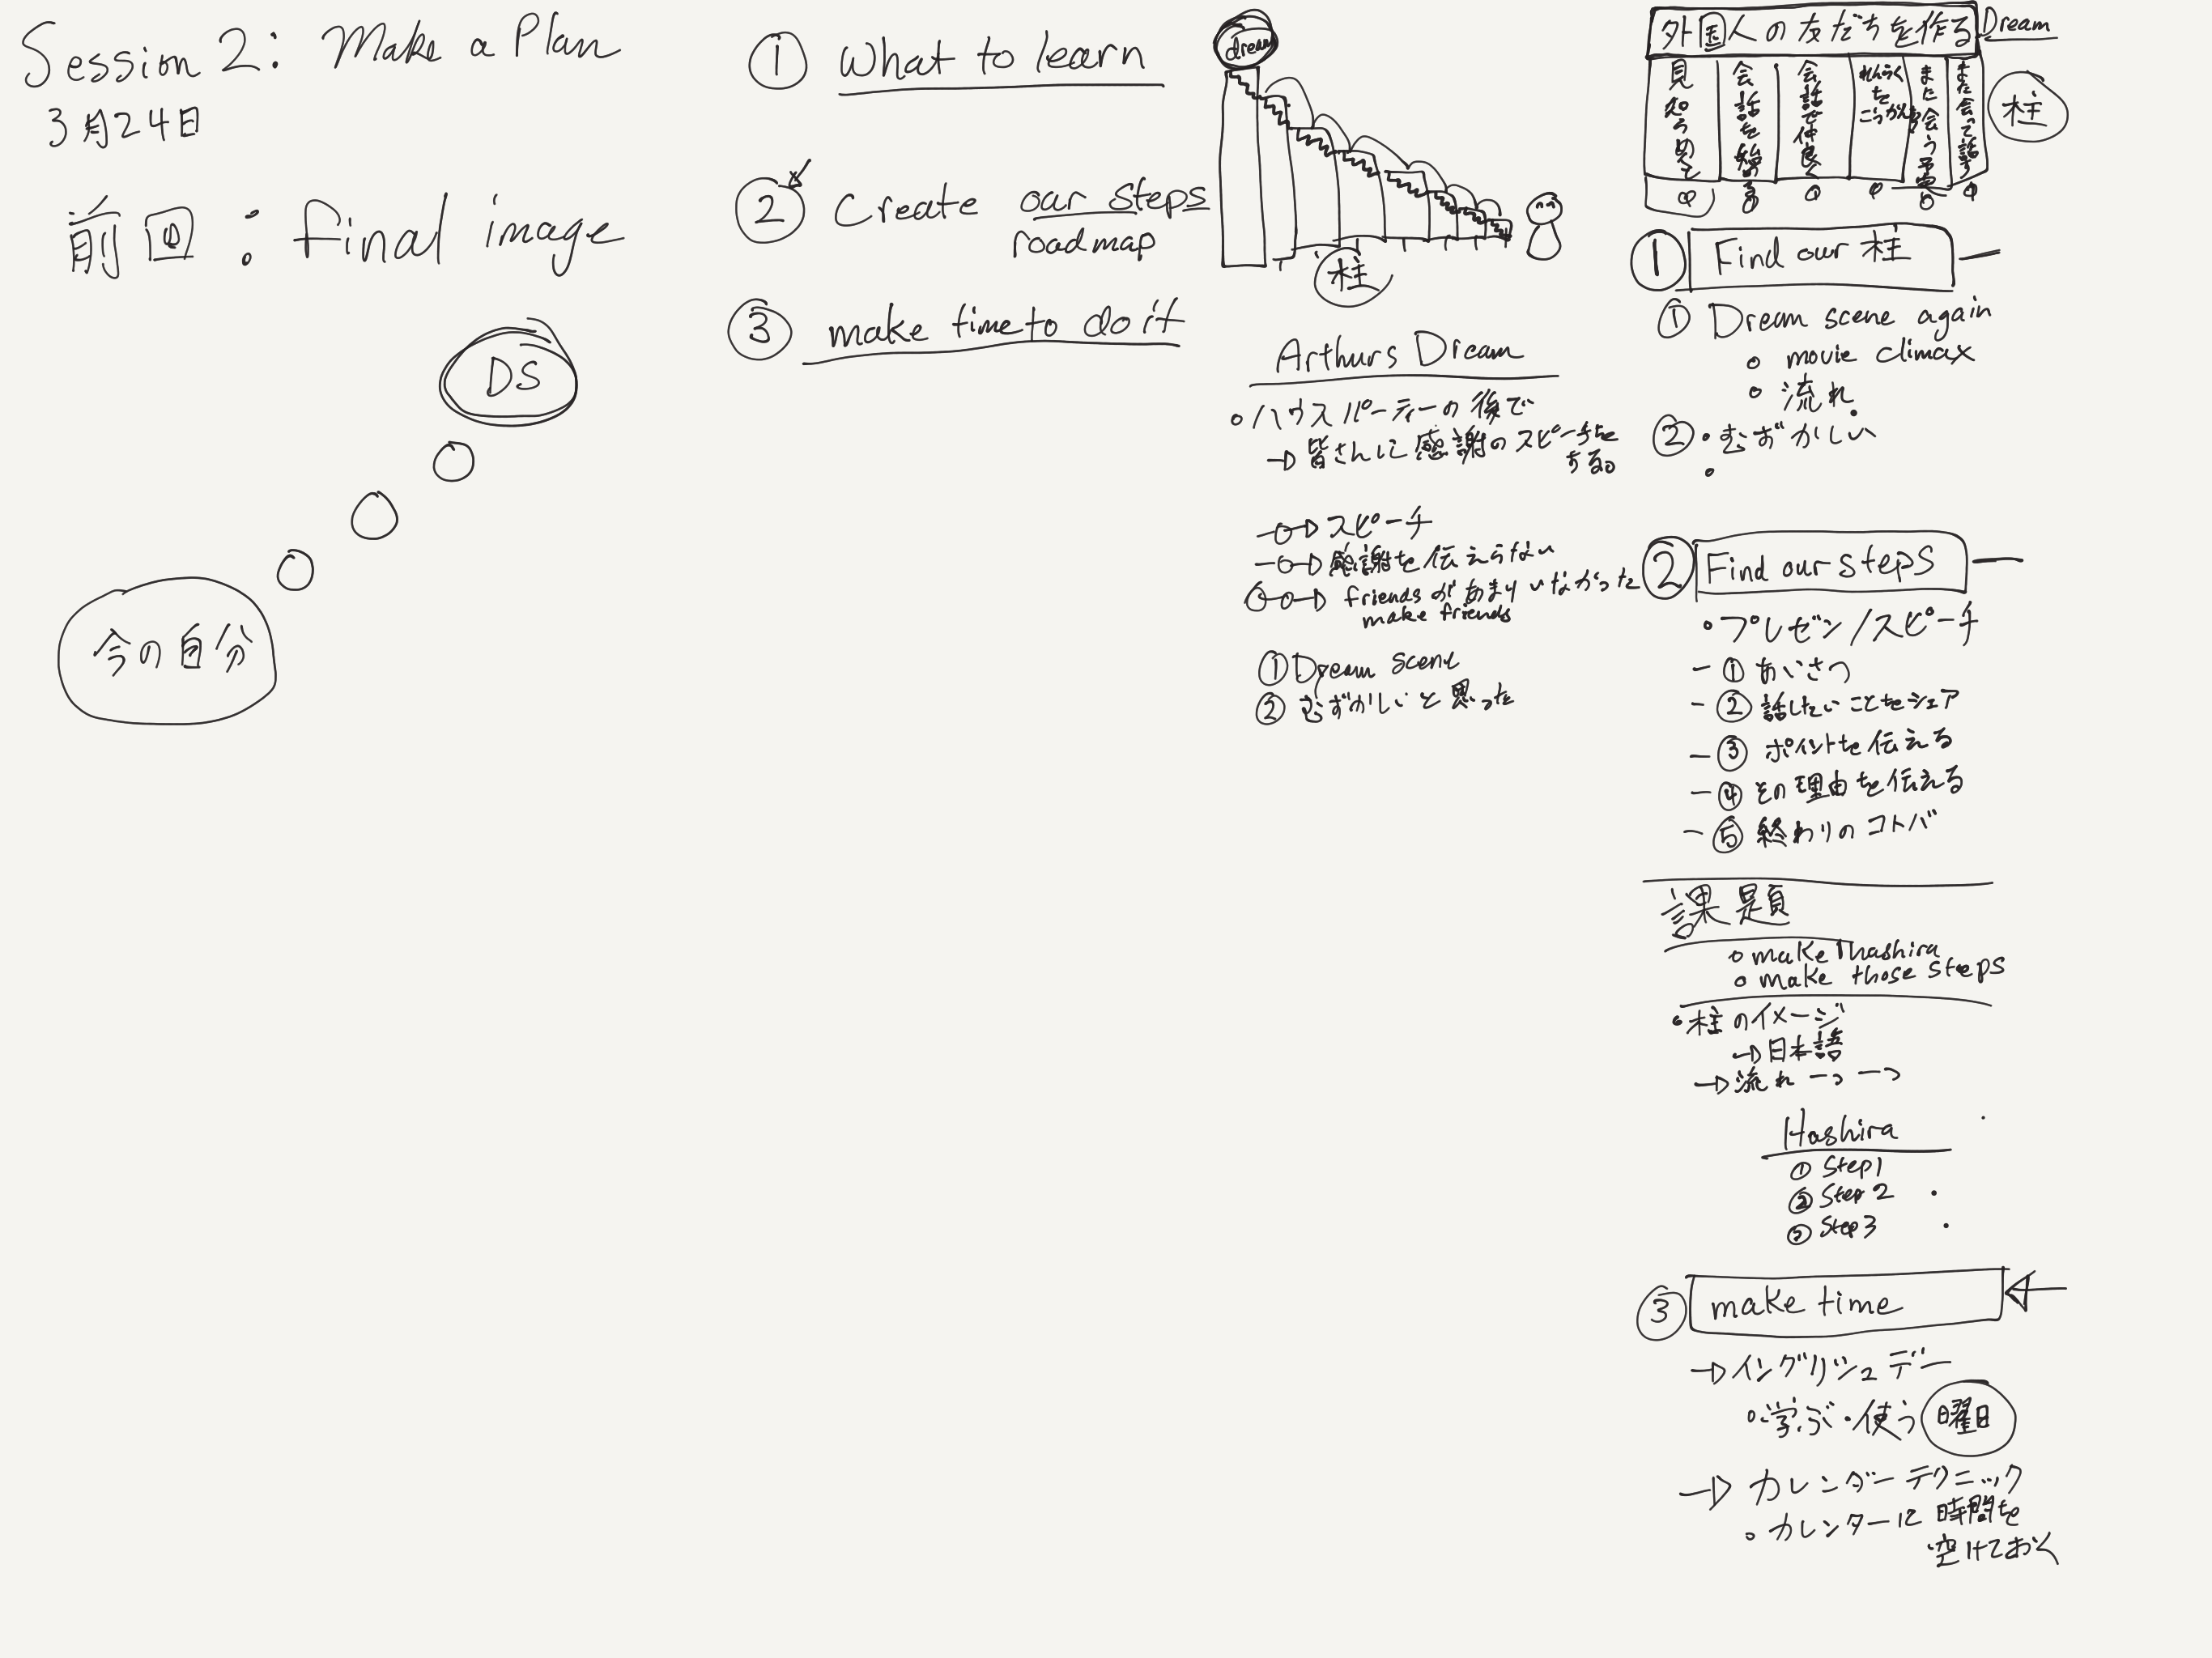 Session 2: Make a Plan
3月24日
前回:final image
DS
今の自分
① What to learn
② Create our steps
roadmap
③ make time to do it
dream
柱
Arthurs Dream
○ハウスパーティーの後で
→皆さんに感謝のスピーチを
する。
→スピーチ
→感謝を伝えらない
→friendsがあまりいなかった
make friends
①Dream scene
②むずかしいと思った
外国人の友だちを作る
Dream
会話を始める
会話で仲良く
れんらくを
また会う予定
また会って話す
柱
① Find our 柱
① Dream scene again
○ movie climax
○ 流れ
② ・むずかしい
② Find our steps
・プレゼン/スピーチ
- ① あいさつ
- ② 話したいことをシェア
- ③ ポイントを伝える
- ④ その理由を伝える
- ⑤ 終わりのコトバ
課題
○ make 1 hashira
○ make those steps
・柱のイメージ
→日本語
→流れ一つ一つ
Hashira
① Step1
② Step2
③ Step3
③ make time
→イングリッシュデー
○・学ぶ・使う 曜日
→カレンダーテクニック
○カレンダーに時間を
空けておく